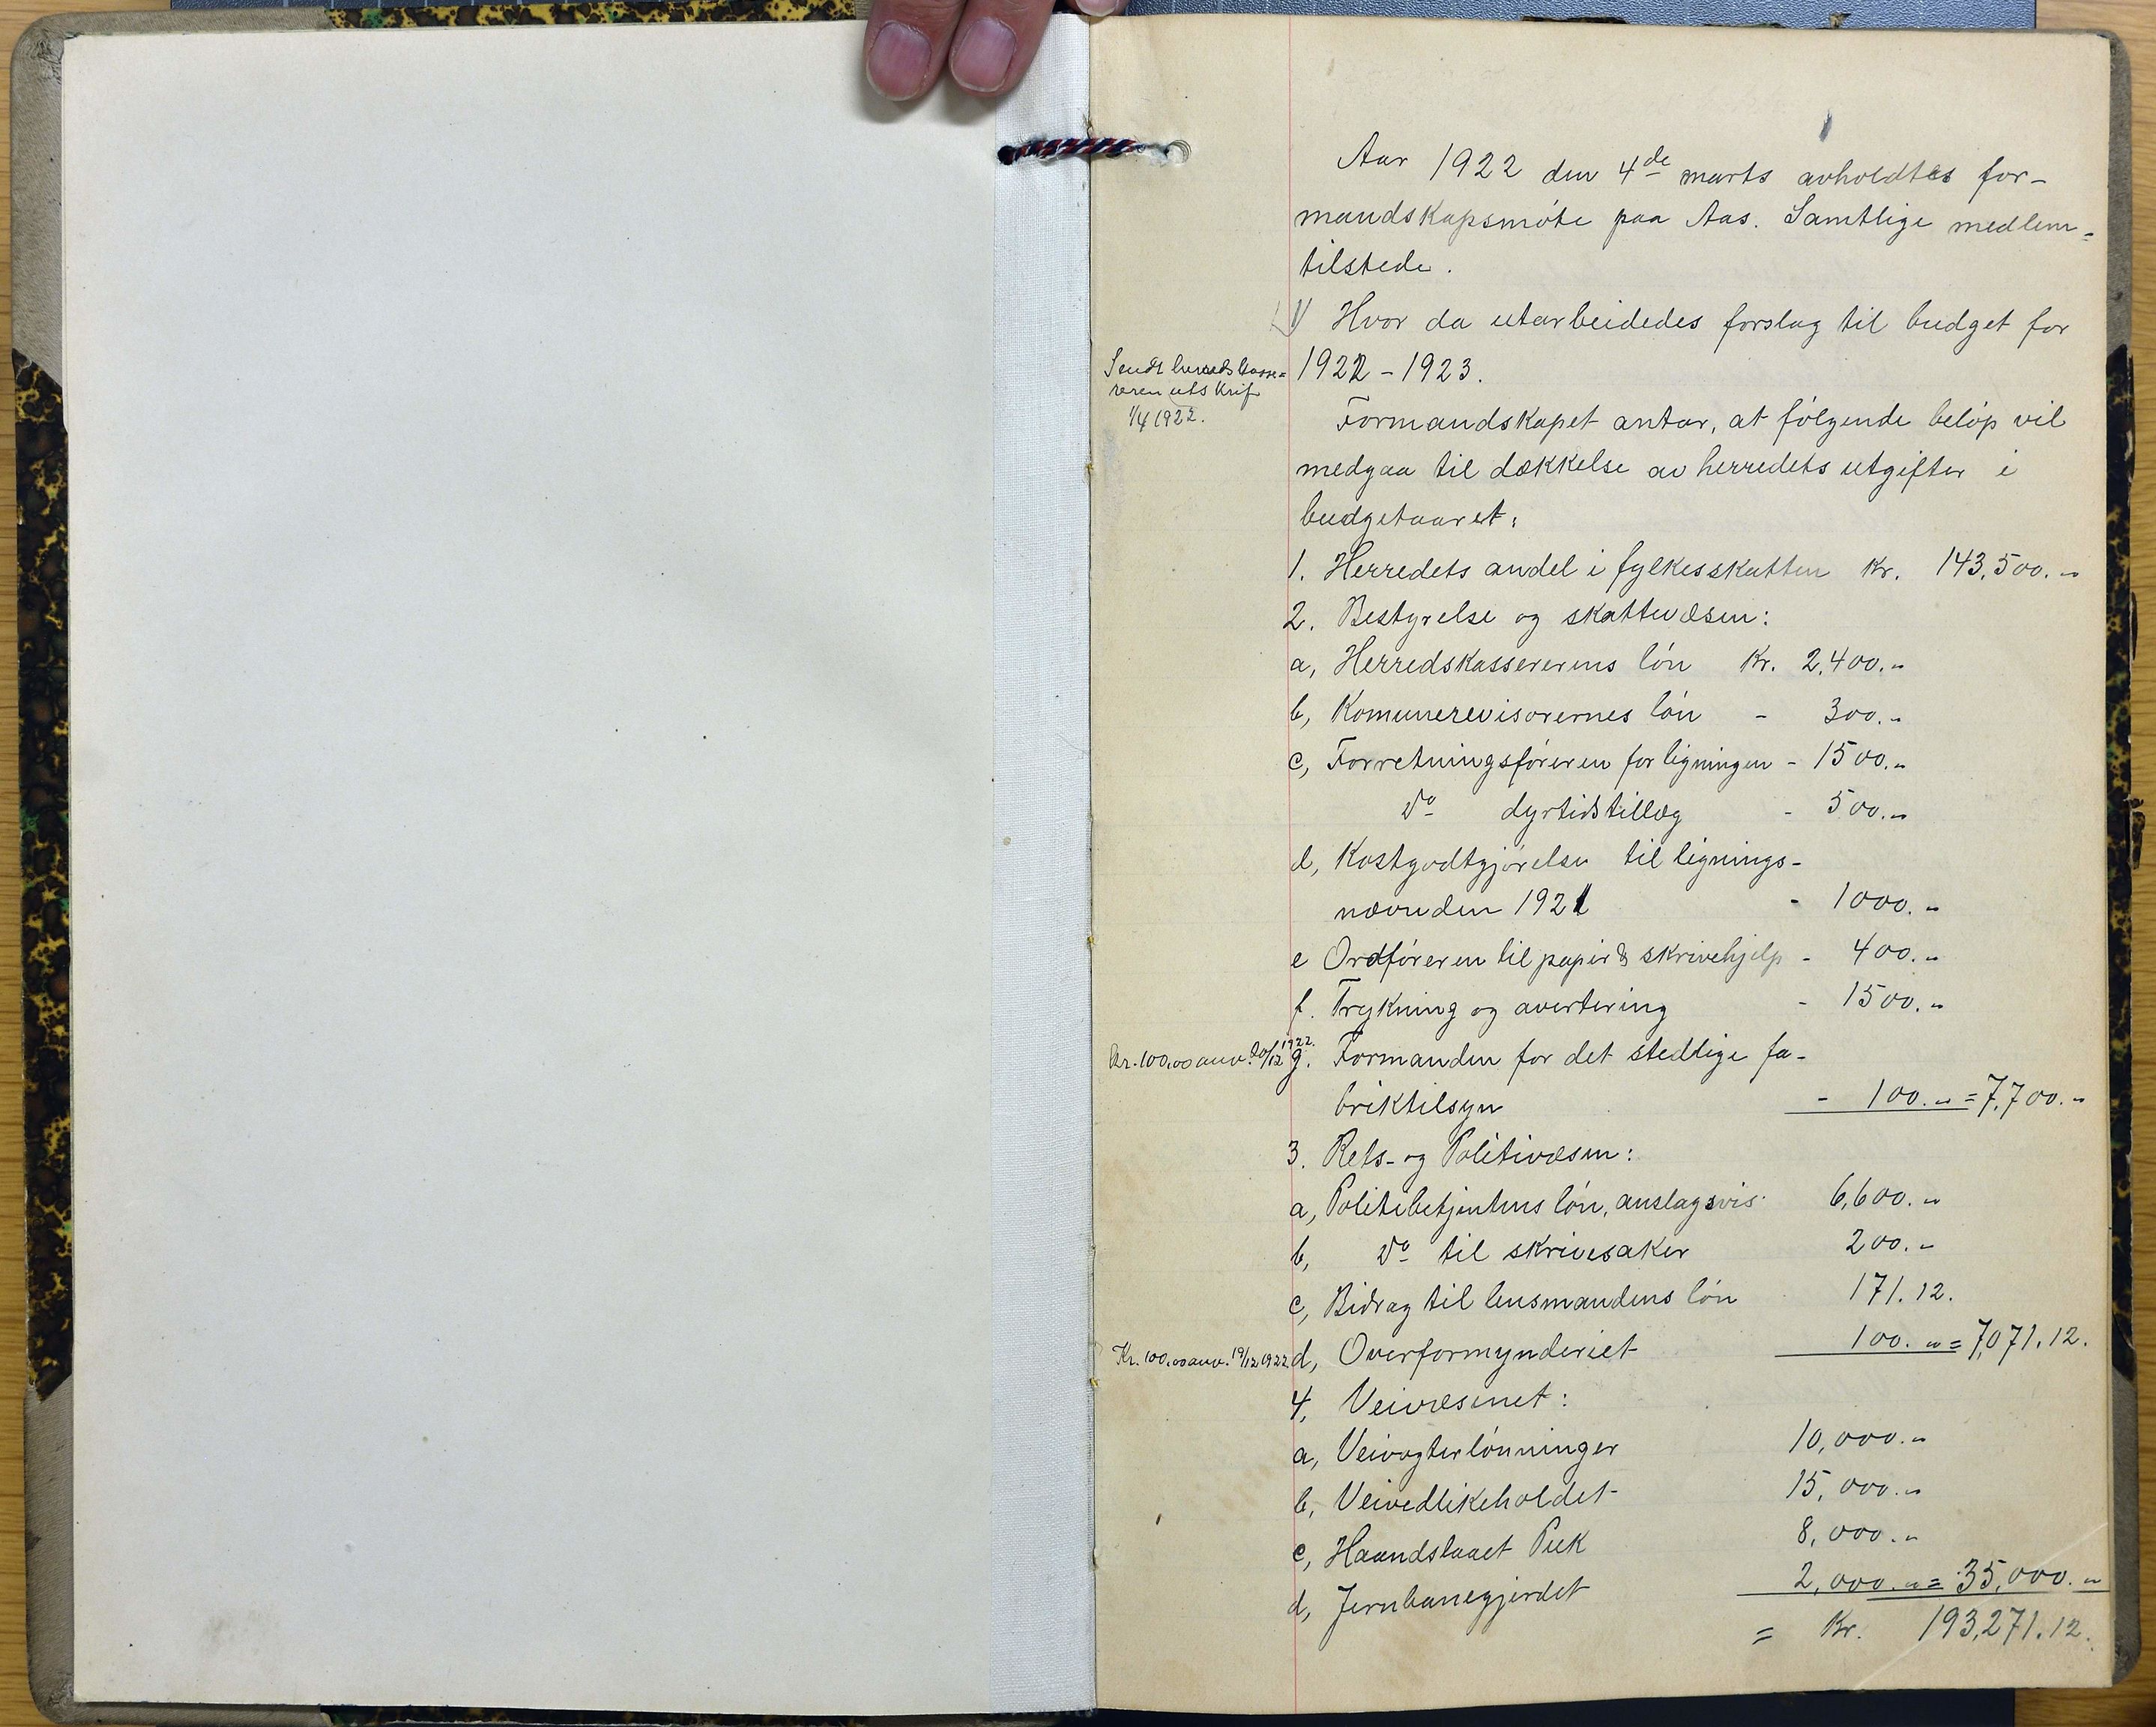 Aar 1922 den 4de marts avholdtes for-
mandskapsmöte paa Aas. Samtlige medlem=
tilstede.
1) Hvor da utarbeidedes forslag til budget for
Sendt herredskasse=
reren utskrif
1/4 1922.
1922 - 1923.
Formandskapet antar, at følgende beløp vil
medgaa til dækkelse av herredets utgifter i
budgetaaret:
1. Herredets andel i fylkesskatten Kr. 143,500.-
2. Bestyrelse og skattevæsen:
a, Herredskassererens lön Kr. 2,400.-
b, Komunerevisorernes lön - 300.-
c, Forretningsföreren for ligningen - 1500.-
do dyrtidstillæg - 500.-
d, Kostgodtgjörelse til lignings-
nævnden 1921 - 1000.-
e Ordföreren til papir & skrivehjelp - 400.-
f. Trykning og avertering - 1500.-
Kr. 100,00 anv. 20/12 1922.
g. Formanden for det stedlige fa-
briktilsyn - 100.- = 7,700.-
3. Rets- og Politivæsen:
a, Politibetjentens lön, anslagsvis 6,600.-
b, do til skrivesaker 200.-
c, Bidrag til lensmandens lön 171.12.
Kr. 100,00 anv. 19/12 1922
d, Overformynderiet 100.- = 7,071.12.
4, Veivæsenet:
a, Veivogterlönninger 10,000.-
b, Veivedlikeholdet 15,000.-
c, Haandslaaet Puk 8,000.-
d, Jernbanegjerdet 2,000.- = 35,000.-
= Kr. 193,271.12.